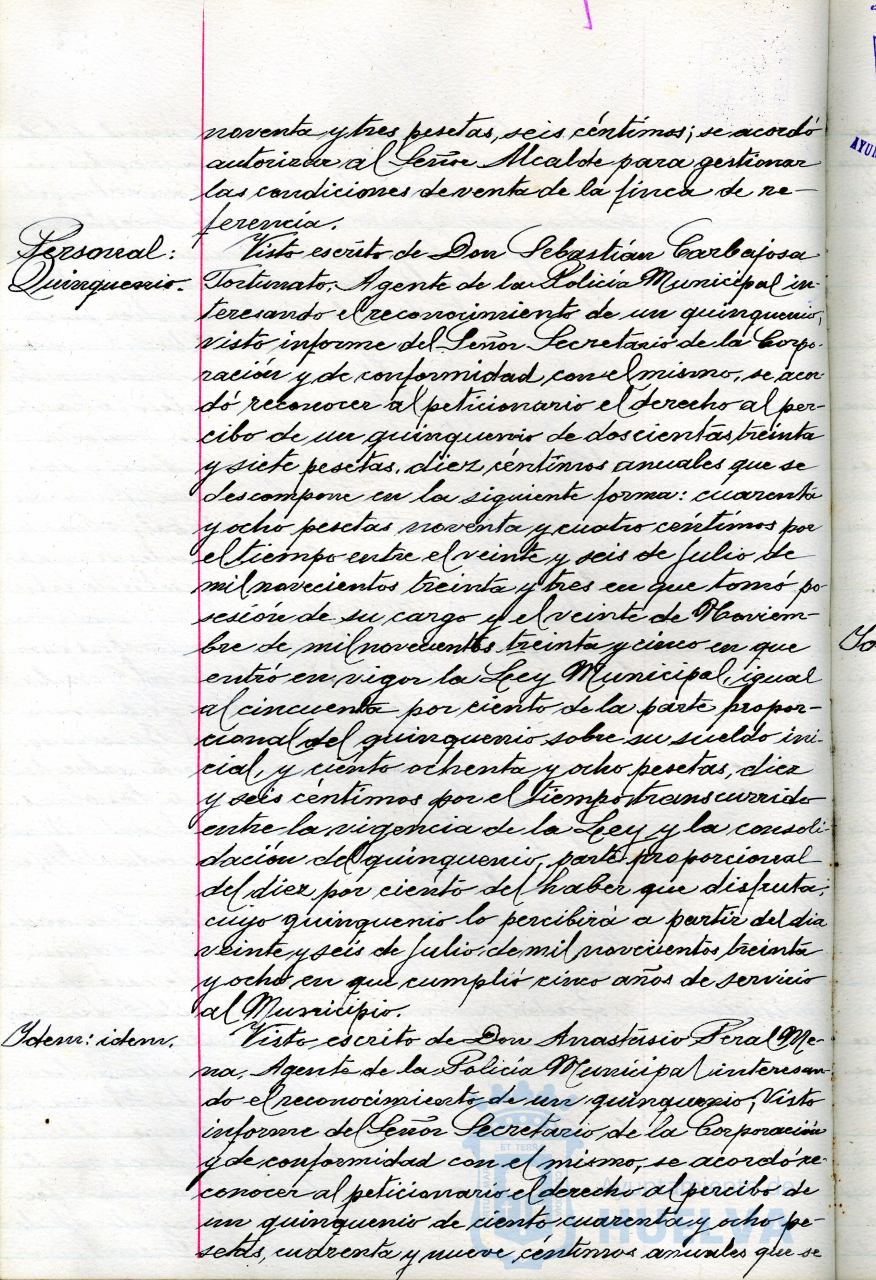 noventa y tres pesetas, seis céntimos; se acordó
autorizar al Señor Alcalde para gestionar
las condiciones de venta de la finca de re-
ferencia.
Personal:
Quinquenio.
Visto escrito de Don Sebastián Carbajosa
Fortunato, Agente de la Policía Municipal in-
teresando el reconocimiento de un quinquenio,
visto informe del Señor Secretario de la Corpo-
ración y de conformidad con el mismo, se acor-
dó reconocer al peticionario el derecho al per-
cibo de un quinquenio de doscientas treinta
y siete pesetas, diez céntimos anuales que se
descompone en la siguiente forma: cuarenta
y ocho pesetas noventa y cuatro céntimos por
el tiempo entre el veinte y seis de Julio de
mil novecientos treinta y tres en que tomó po
sesión de su cargo y el veinte de Noviem-
bre de mil novecientos treinta y cinco en que
entró en vigor la Ley Municipal, igual
al cincuenta por ciento de la parte propor-
cional del quinquenio sobre su sueldo ini-
cial, y ciento ochenta y ocho pesetas, diez
y seis céntimos por el tiempo transcurrido
entre la vigencia de la Ley y la consoli-
dación del quinquenio, parte proporcional
del diez por ciento del haber que disfruta;
cuyo quinquenio lo percibirá a partir del dia
veinte y seis de Julio de mil novecientos treinta
y ocho, en que cumplió cinco años de servicio
al Municipio.
Idem: idem.
Visto escrito de Don Anastasio Peral Me-
na, Agente de la Policía Municipal interesan-
do el reconocimiento de un quinquenio; Visto
informe del Señor Secretario de la Corporación
y de conformidad con el mismo, se acordó re-
conocer al peticionario el derecho al percibo de
un quinquenio de ciento cuarenta y ocho pe-
setas, cuarenta y nueve céntimos anuales que se
Ayuntamiento de
HUELVA